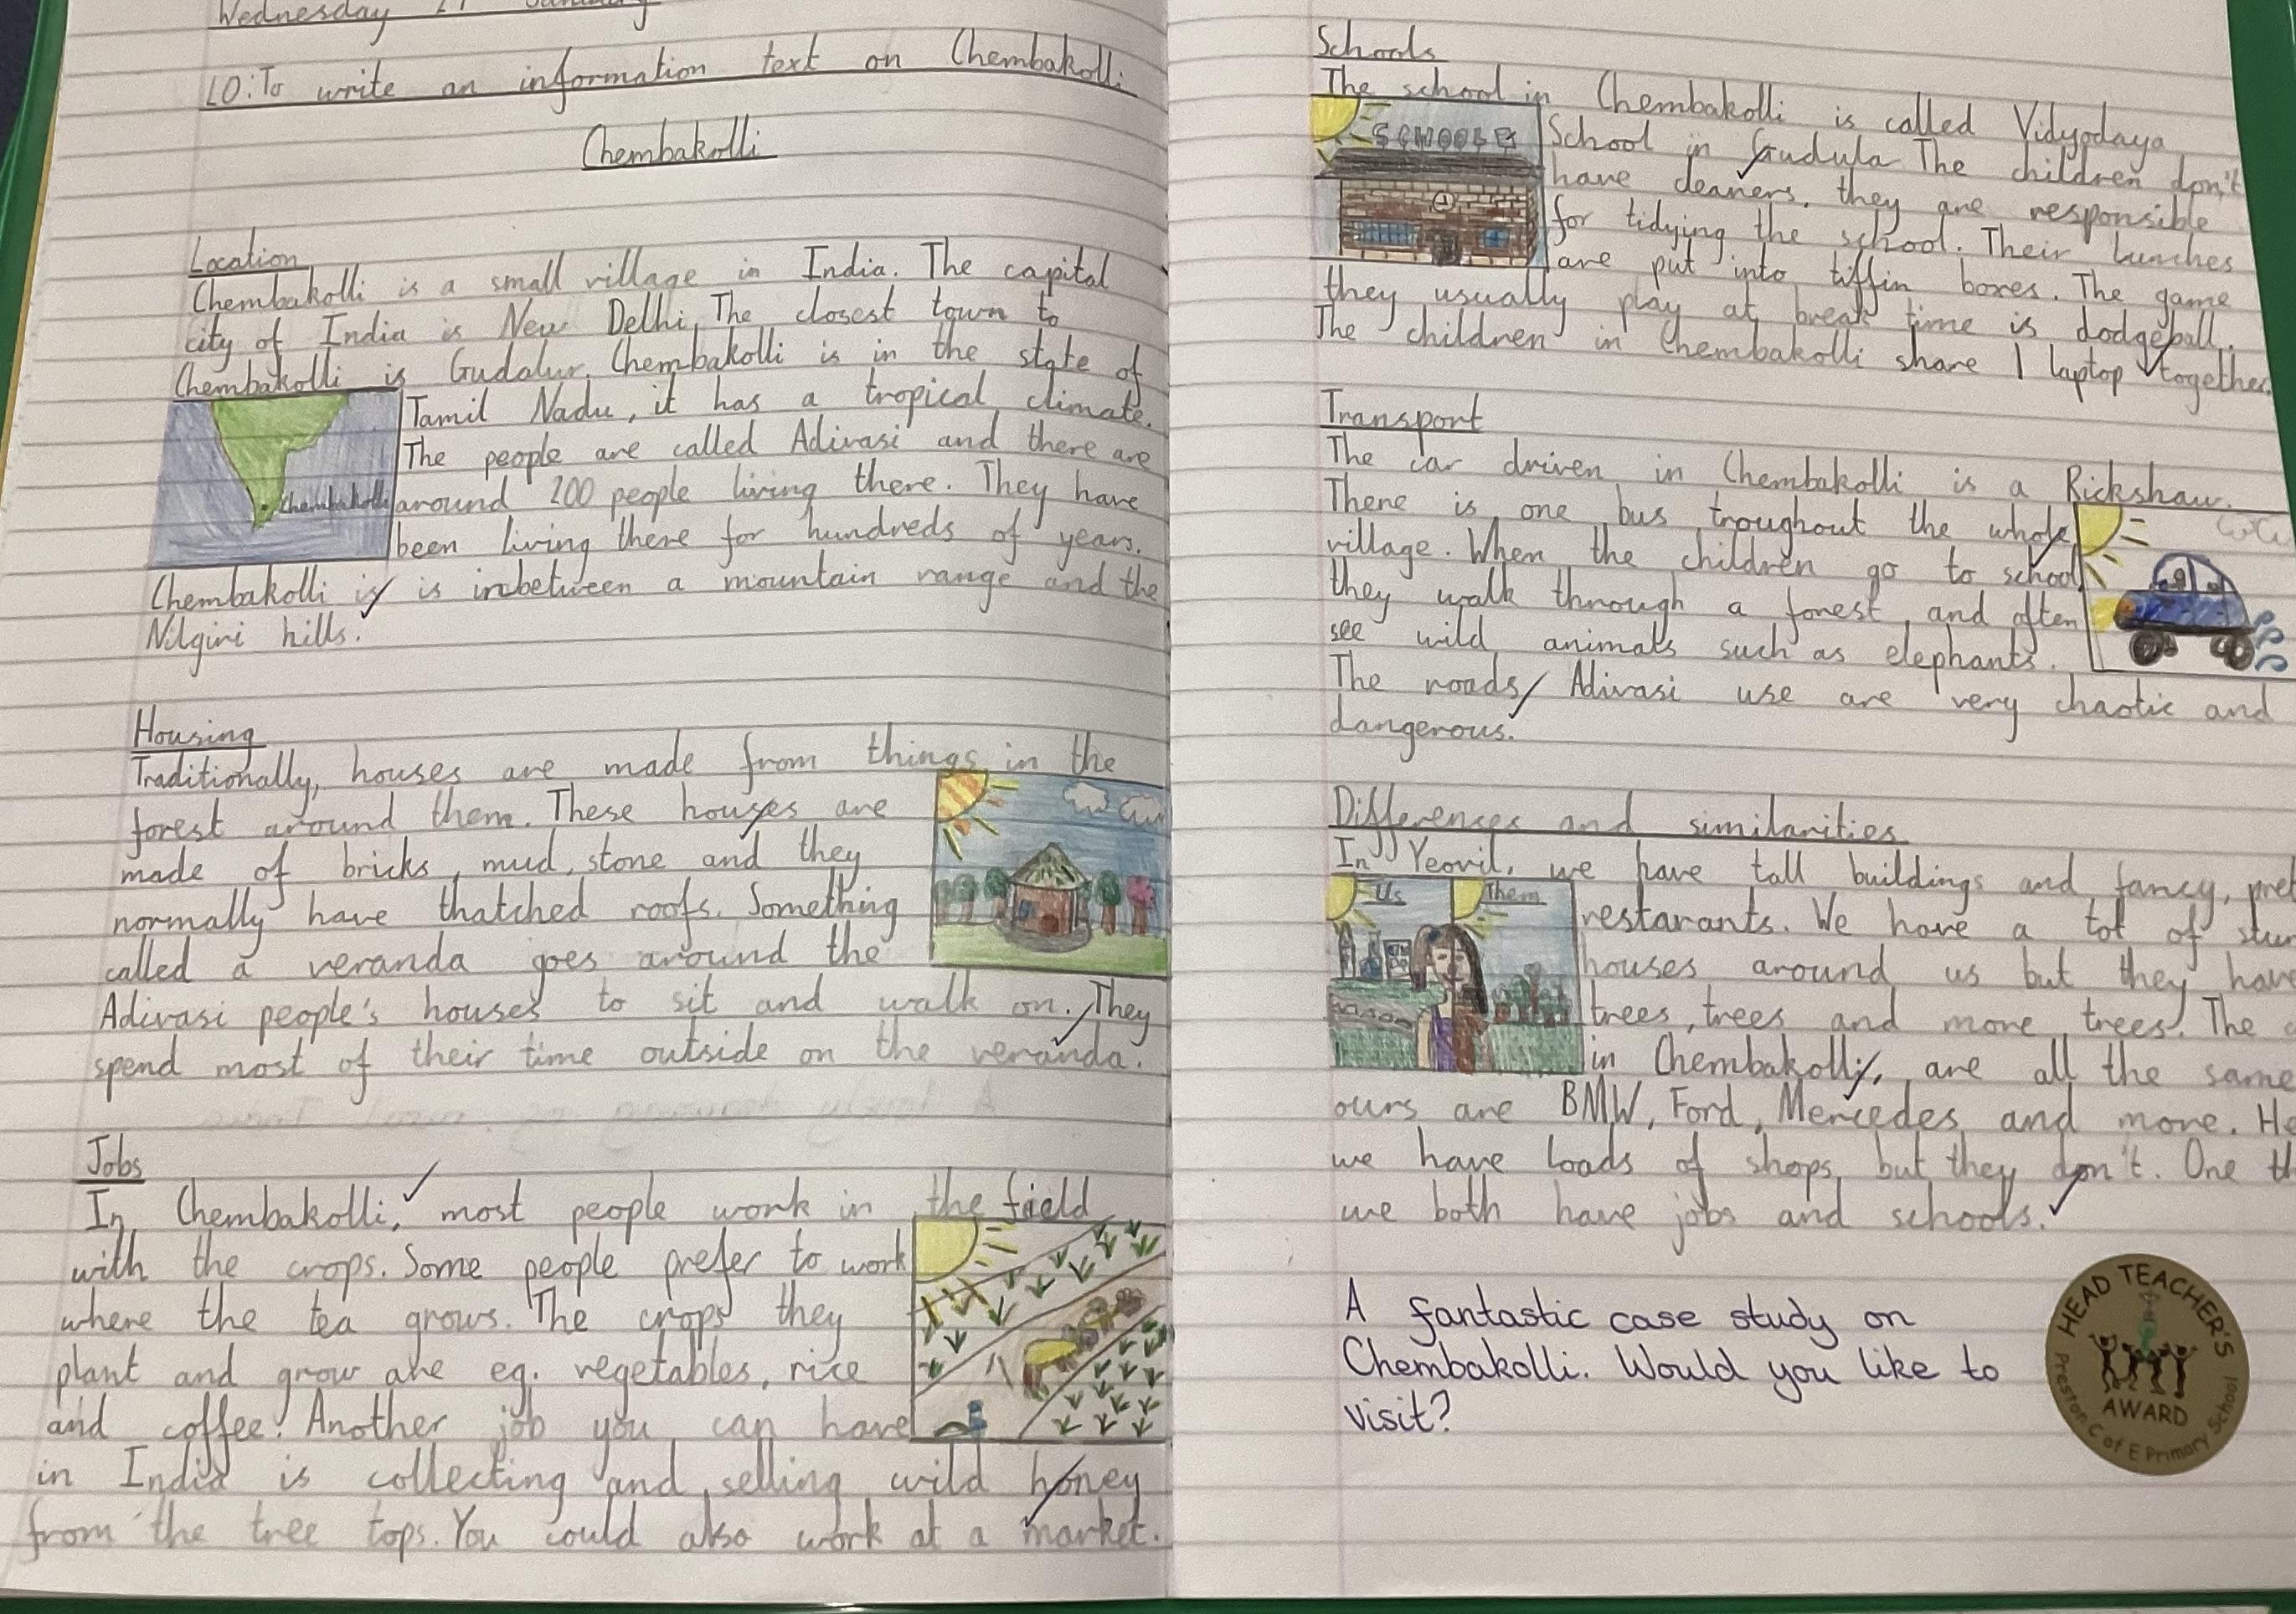 Wednesday
LO: To write an information text on Chembakolli
Chembakolli
Location
Chembakolli is a small village in India. The capital
city of India is New Delhi. The closest town to
Chembakolli is Gudalur. Chembakolli is in the state of
Tamil Nadu, it has a tropical climate.
The people are called Adivasi and there are
Chembakolli
around 200 people living there. They have
been living there for hundreds of years.
Chembakolli is is inbetween a mountain range and the
Nilgiri hills.
Housing
Traditionally, houses are made from things in the
forest around them. These houses are
made of bricks, mud, stone and they
normally have thatched roofs. Something
called a veranda goes around the
Adivasi people's houses to sit and walk on. They
spend most of their time outside on the veranda.
Jobs
In Chembakolli, most people work in the field
with the crops. Some people prefer to work
where the tea grows. The crops they
plant and grow are eg. vegetables, rice
and coffee. Another job you can have
in India is collecting and selling wild honey
from the tree tops. You could also work at a market.
Schools
The school in Chembakolli is called Vidyodaya
SCHOOL
School in Gudula. The children don't
have cleaners, they are responsible
for tidying the school. Their lunches
are put into tiffin boxes. The game
they usually play at break time is dodgeball.
The children in Chembakolli share 1 laptop together.
Transport
The car driven in Chembakolli is a Rickshaw.
There is one bus troughout the whole
village. When the children go to school,
they walk through a forest and often
see wild animals such as elephants.
The roads Adivasi use are very chaotic and
dangerous.
Differences and similarities
In Yeovil, we have tall buildings and fancy,
Us Them
restarants. We have a lot of
houses around us but they have
trees, trees and more trees. The
in Chembakolli, are all the same
ours are BMW, Ford, Mercedes and more.
we have loads of shops but they don't. One
we both have jobs and schools.
A fantastic case study on
Chembakolli. Would you like to
visit?
HEAD TEACHER'S
AWARD
Preston C of E Primary School